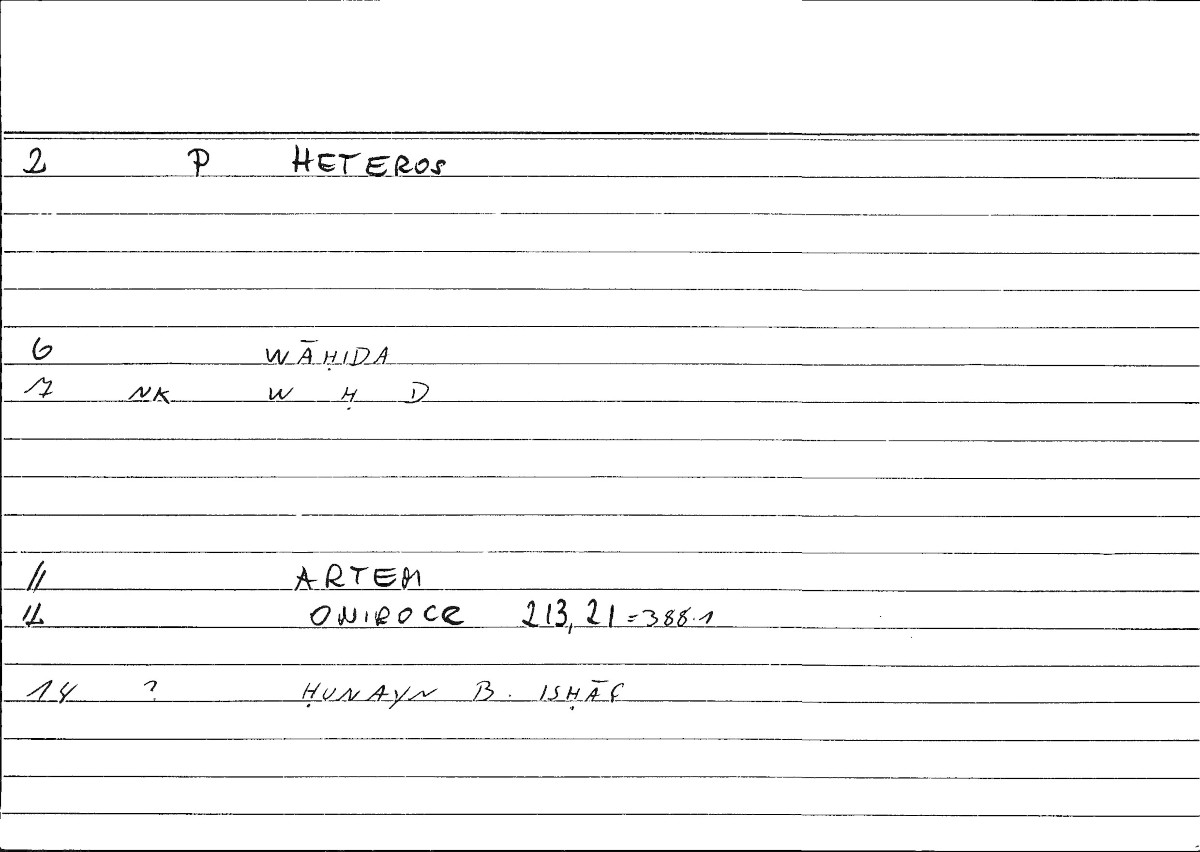 2 P HETEROS
6 WĀḤIDA
7 NK W Ḥ D
11 ARTEM
12 ONIROCR 213,21 = 388.1
14 ? ḤUNAYN B. ISḤĀQ